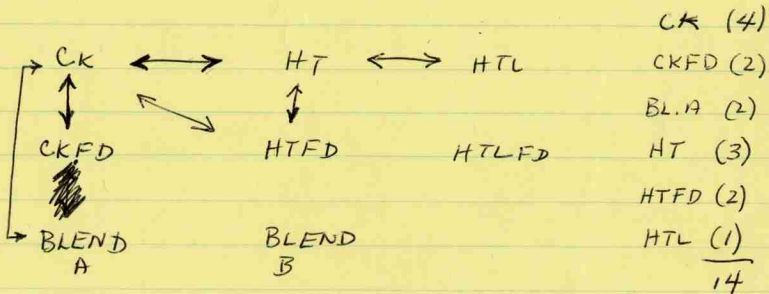 CK HT HTL
CKFD HTFD HTLFD
BLEND BLEND
A B
CK (4)
CKFD (2)
BL.A (2)
HT (3)
HTFD (2)
HTL (1)
14